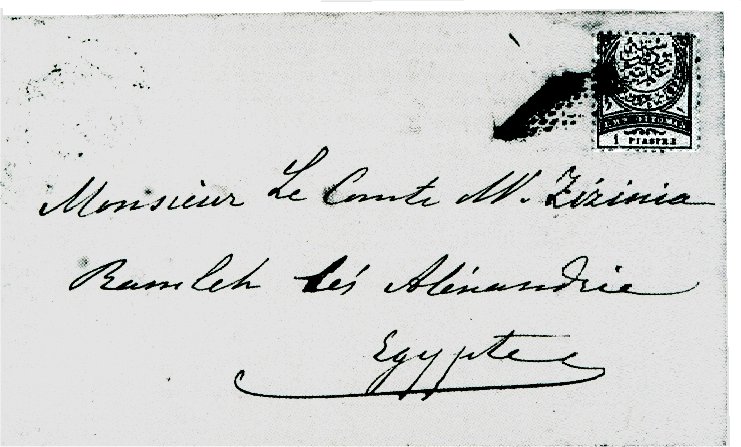 1 PIASTRE
Monsieur Le Comte M. Zizinia
Ramleh lés Alénandrie
Egypte